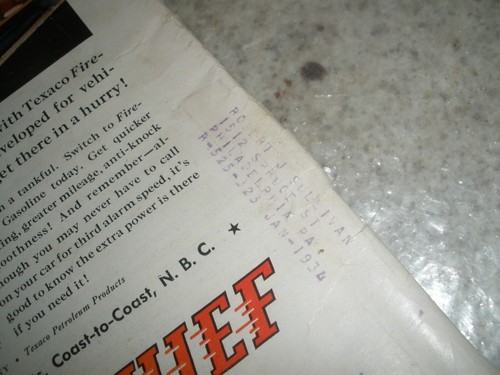 with Texaco Fire-
veloped for vehi-
et there in a hurry!
n a tankful. Switch to Fire-
Gasoline today. Get quicker
ing, greater mileage, anti-knock
oothness! And remember—al-
hough you may never have to call
on your car for third alarm speed, it's
good to know the extra power is there
if you need it!
Texaco Petroleum Products
Coast-to-Coast, N. B. C. ★
HEF
J SULLIVAN
ST
PHILADELPHIA PA
JAN-1934